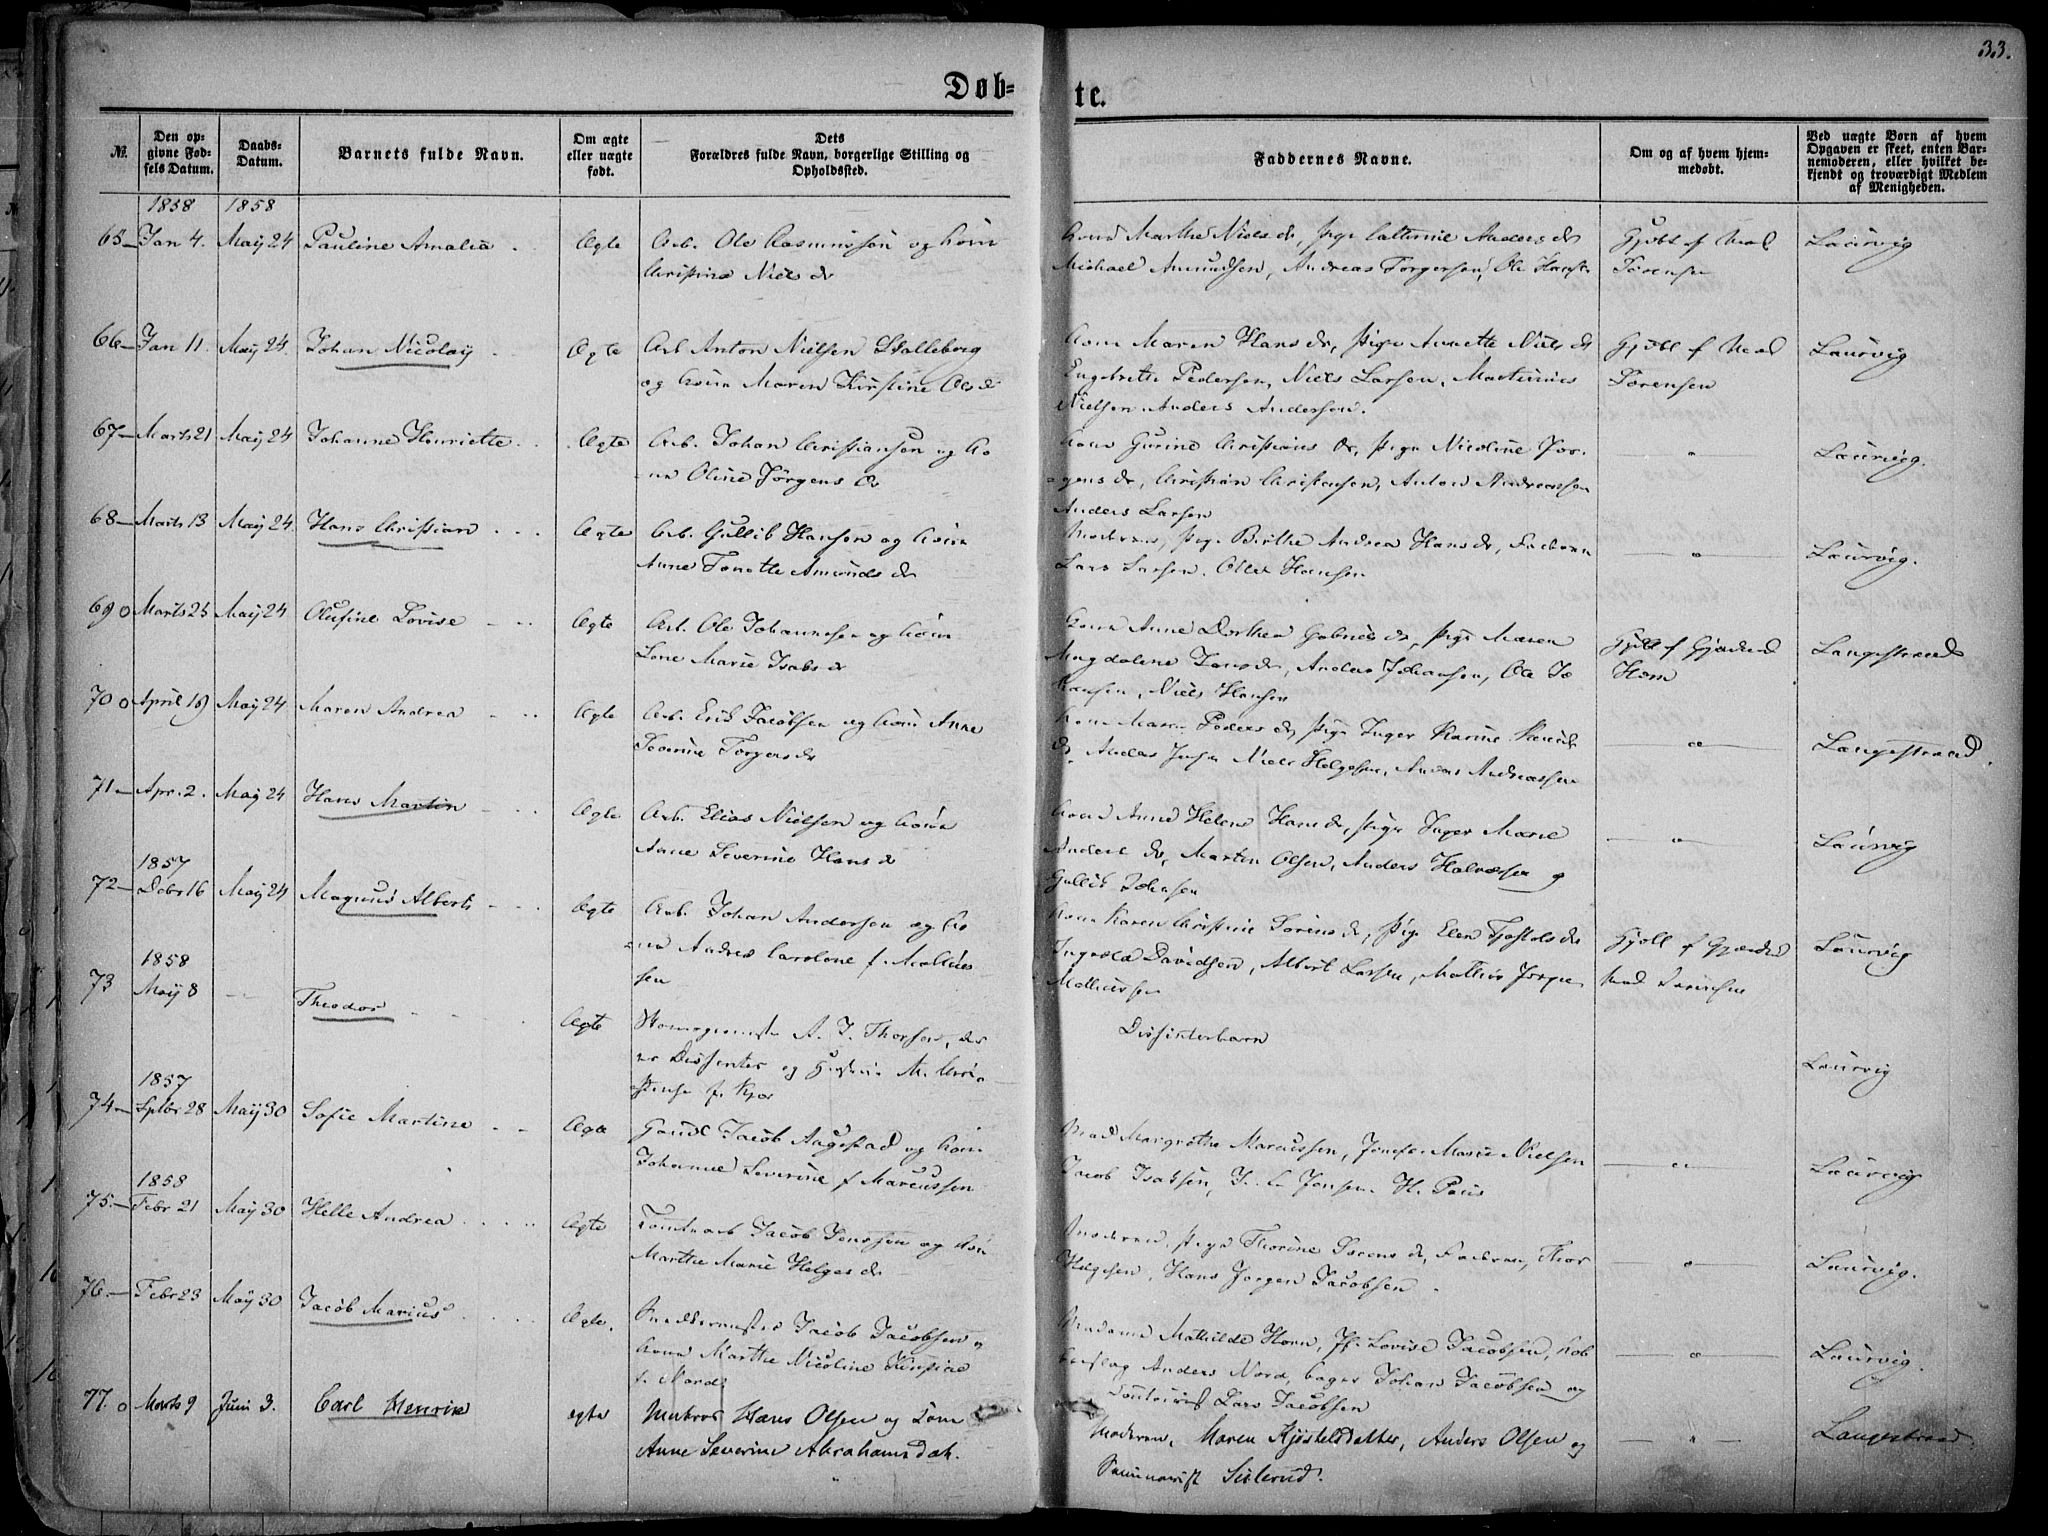 33.
Døb-
te.
№.
Den op-
givne Fød-
sels Datum.
Daabs-
Datum.
Barnets fulde Navn.
Om ægte
eller uægte
født.
Dets
Forældres fulde Navn, borgerlige Stilling og
Opholdssted.
Faddernes Navne.
Om og af hvem hjem-
medøbt.
Ved uægte Børn af hvem
Opgaven er skeet, enten Bar-
nemoderen, eller hvilket be-
kjendt og troværdigt Medlem
af Menigheden.
1858 1858
65 Jan 4. May 24 Pauline Amalia Ægte Arb. Ole Rasmussen og Kone
Christine Niels dr
Kone Marthe Niels dr, Pige Cathrine Anders dr
Michael Amundsen, Andreas Torgersen, Ole Hansen
Gjdbt af Mad
Sørensen
Laurvig
66 Jan 11. May 24. Johan Nicolay Ægte Arb Anton Nielsen Stalleborg
og Kone Maren Kirstine Ols d
Kone Maren Hans dr, Pige Annette Niels dr
Engebrette Pedersen, Niels Larsen, Mathinus
Nielsen Anders Andersen.
Gjdbt af Mad
Sørensen
Laurvig
67 Marts 21 May 24 Johanne Henriette Ægte Arb. Johan Christiansen og Ko
ne Oline Jørgens dr
Kone Gurine Christians dr, Pige Nicoline Jør-
gens dr, Christian Christensen, Anton Andreassen
Anders Larsen
Laurvig.
68 Marts 13 May 24. Hans Christian Ægte Arb. Gullik Hansen og Kone
Anne Tonette Amunds dr
Moderen, Pige Birthe Andrea Hans dr, Faderen
Lars Larsen. Ole Hansen
Laurvig.
69 Marts 25 May 24 Olufine Lovise Ægte Arb. Ole Johannesen og Kone
Lene Marie Isaks dr
Kone Anne Dorthea Gabriels dr, Pige Maren
Magdalene Jans dr, Anders Johansen, Ole Jo
hansen, Niels Hansen
Gjdbt af Gjordmd
Horn
Langestrand
70 April 19 May 24 Maren Andrea Ægte Arb. Erik Jacobsen og Kone Anne
Severine Torgers dr
Kone Maren Peders dr Pige Inger Karine Henrik
dr, Anders Niels Helgesen, Anders Andreassen
Langestrand.
71 Apr. 2. May 24 Hans Martin Ægte Arb. Elias Nielsen og Kone
Anne Severine Hans dr
Kone Anne Helene Hans dr, Pige Inger Marie
Anders dr, Martin Olsen, Anders Halvorsen og
Gullik Johnsen
Laurvig
1857
72 Decbr 16 May 24 Magnus Albert Ægte Arb. Johan Andersen og Ko
ne Andrea Carolone f. Mathies
sen
Kone Karen Christine Sørens dr, Pige Elen Tjøstels dr
Ingvald Davidsen, Albert Larsen, Mathis Jørgen
Mathiessen
Gjdbt af Gjordmd
Mad Sørensen
Laurvig
1858
73 May 8 Theodor Ægte A. J. Thorsen, der
er Dissenter og M. Chri-
stense f. Kjær
Dissinterbarn
Laurvig
1857
74 Septbr 28 May 30 Sofie Martine Ægte Jacob Augestad og Kone
Johanne Severine f Marcussen
Mad Margrethe Marcussen, Marie Nielsen
Jacob Isaksen, J. C Jensen H. Paus
Laurvig
1858
75. Febr 21 May 30 Helle Andrea Ægte Jacob Jenssen og Kone
Marthe Marie Helges dr
Moderen, Pige Thorine Sørens dr, Faderen, Thor
Helgesen, Hans Jørgen Jacobsen.
Laurvig.
76. Febr 23 May 30 Jacob Marius Ægte. Snedkermester Jacob Jacobsen og
Kone Marthe Nicoline
f. Nord.
Madame Mathilde Horn, Jf. Lovise Jacobsen, Kob
berslag Anders Nord, bager Johan Jacobsen og
Lars Jacobsen
Laurvig.
77. Marts 9 Juni 3. Carl Henrik egte Matros Hans Olsen og Kone
Anne Severine Abrahamsdatr.
Moderen, Maren Kjøstelsdatter, Anders Olsen og
Seminarist Seilerud.
Langestrand.